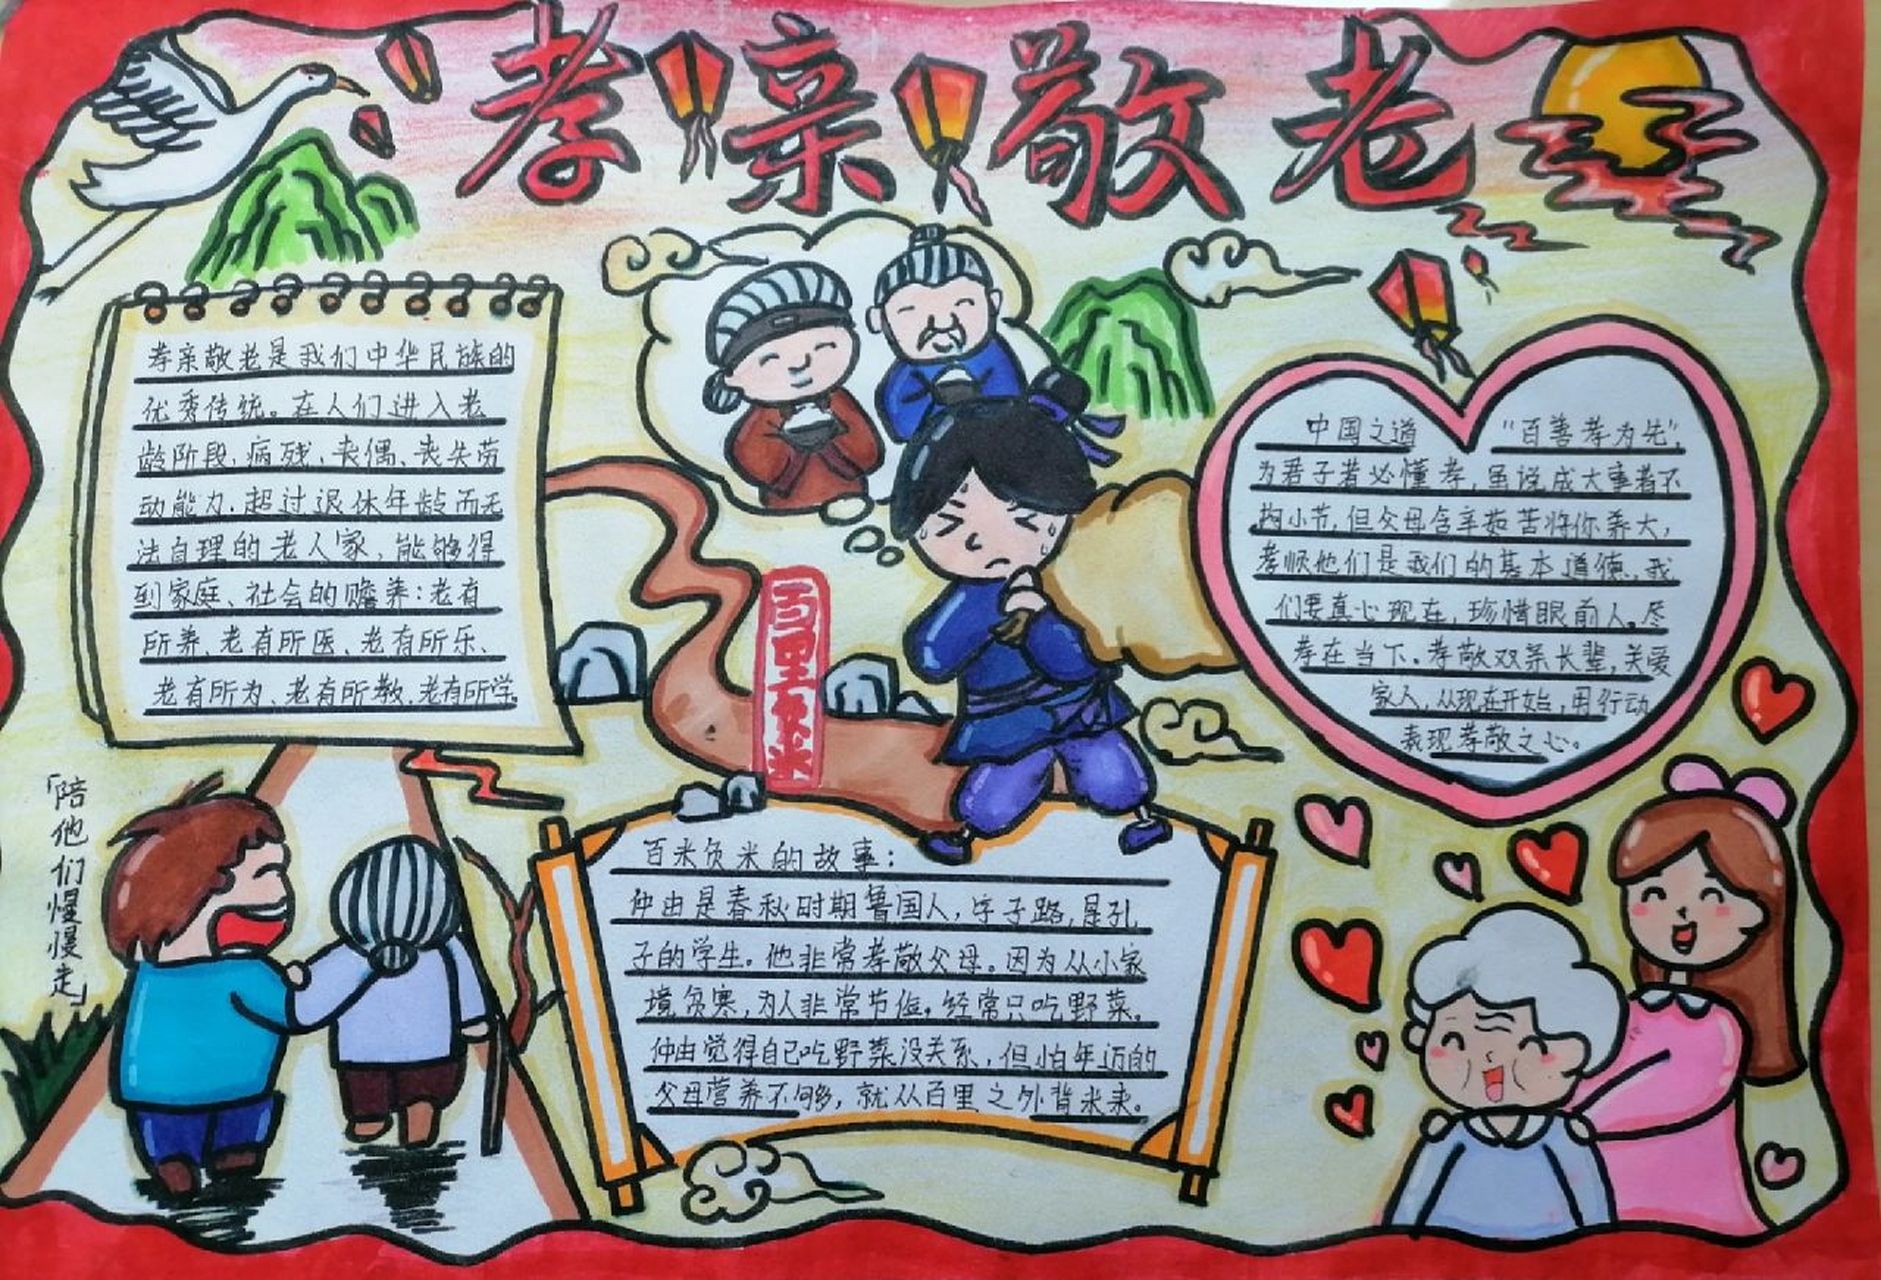 孝亲敬老
孝亲敬老是我们中华民族的
优秀传统。在人们进入老
龄阶段、病残、丧偶、丧失劳
动能力、超过退休年龄而无
法自理的老人家，能够得
到家庭、社会的赡养：老有
所养、老有所医、老有所乐、
老有所为、老有所教、老有所学。
百里负米
中国之道 “百善孝为先”，
为君子者必懂孝，虽说成大事者不
拘小节，但父母含辛茹苦将你养大，
孝顺他们是我们的基本道德，我
们要真心现在，珍惜眼前人。尽
孝在当下。孝敬双亲长辈，关爱
家人，从现在开始，用行动
表现孝敬之心。
「陪他们慢慢走」
百米负米的故事：
仲由是春秋时期鲁国人，字子路，是孔
子的学生。他非常孝敬父母。因为从小家
境负寒，为人非常节俭。经常只吃野菜。
仲由觉得自己吃野菜没关系，但怕年迈的
父母营养不够，就从百里之外背米来。